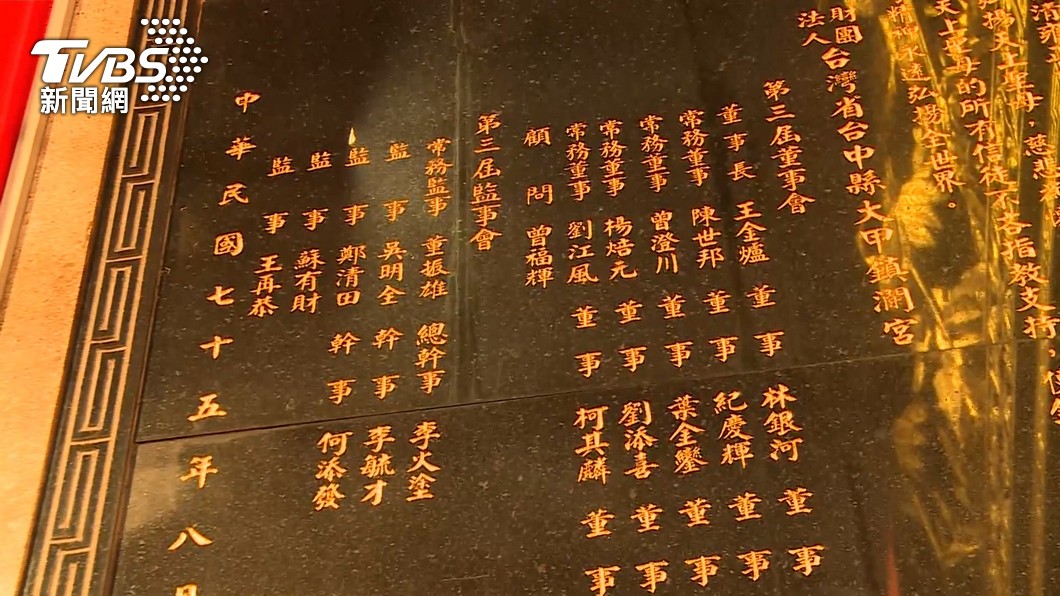 TVBS
新聞網
天上聖母,慈悲
天上聖母的所有信徒不吝指教支持
精神永遠弘揚全世界。
財團法人台灣省台中縣大甲鎮瀾宮
第三屆董事會
董事長 王金爐 董事 林銀河 董事
常務董事 陳世邦 董事 紀慶輝 董事
常務董事 曾澄川 董事 葉金鑾 董事
常務董事 楊焙元 董事 劉添喜 董事
常務董事 劉江風 董事 柯其麟 董事
顧問 曾福輝
第三屆監事會
常務監事 董振雄 總幹事 李火塗
監事 吳明全 幹事 李毓才
監事 鄭清田 幹事 何添發
監事 蘇有財
監事 王再恭
中華民國七十五年八月